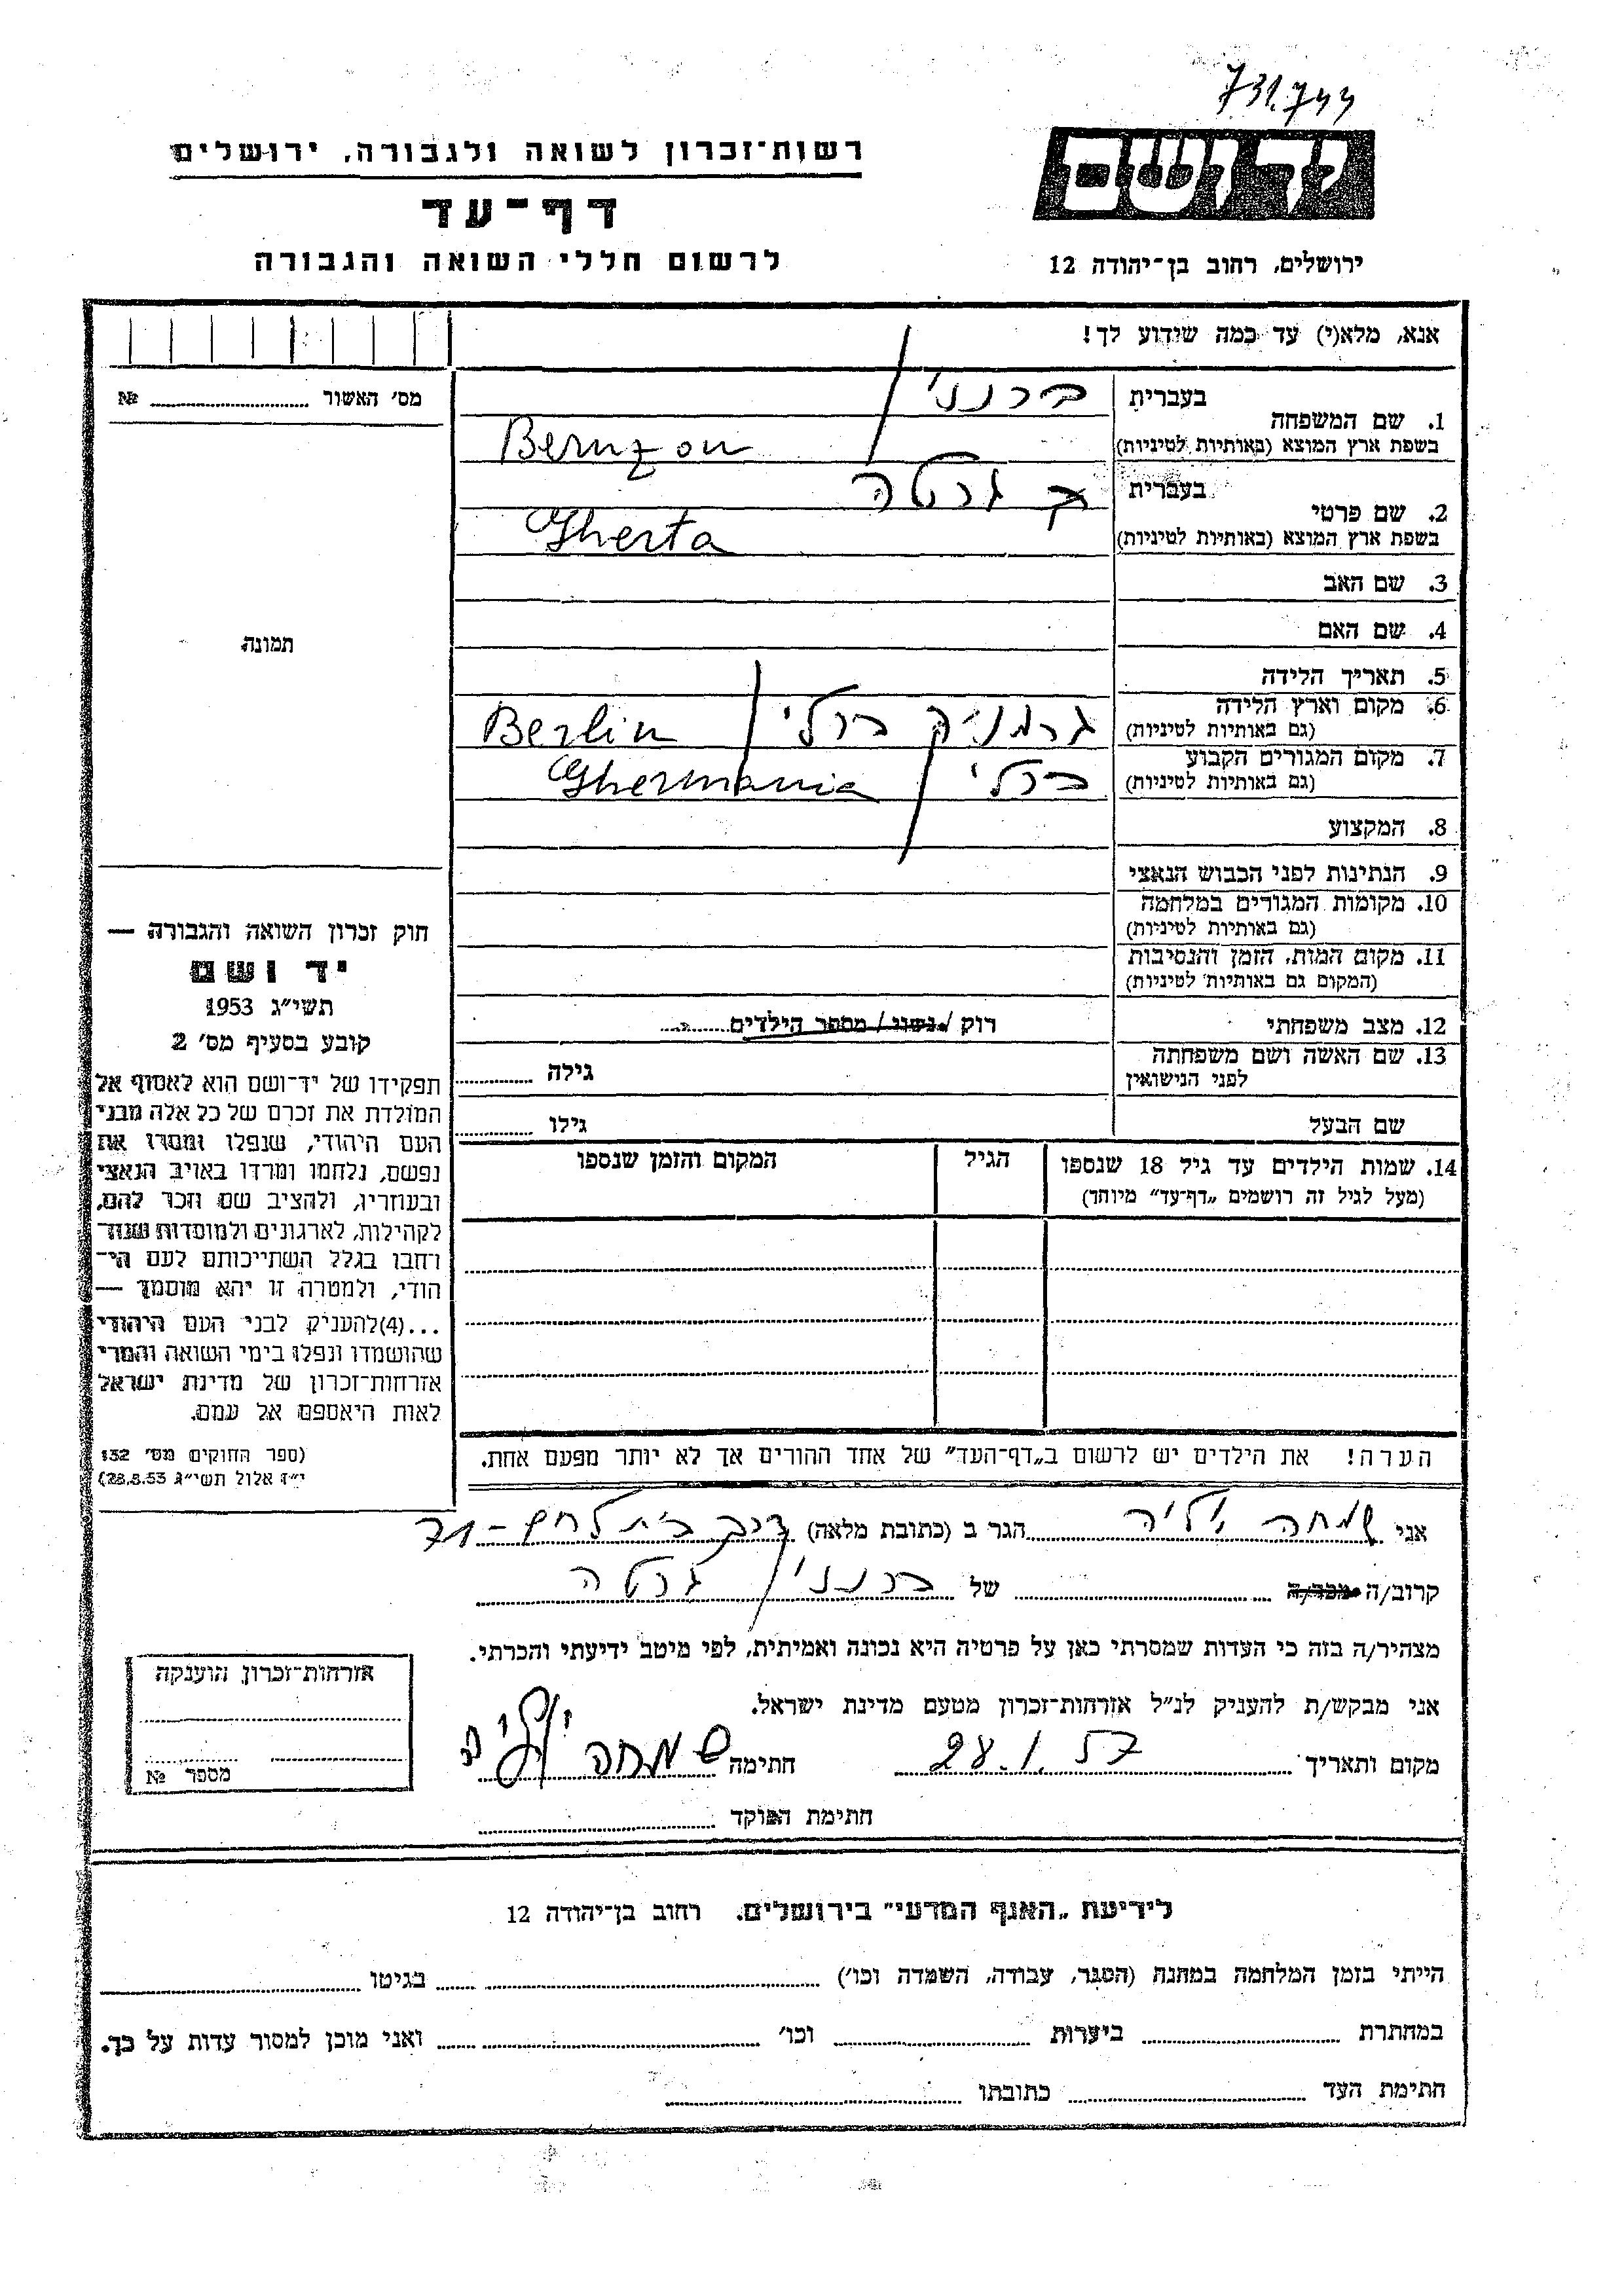 731.744
יד ושם
רשות־זכרון לשואה ולגבורה, ירושלים
דף־עד
לרשום חללי השואה והגבורה
ירושלים, רחוב בן־יהודה 12
אנא, מלא(י) עד כמה שידוע לך!
מס׳ האשור ........ №
תמונה
1. שם המשפחה
בעברית
בשפת ארץ המוצא (באותיות לטיניות)
Bernzon
2. שם פרטי
בעברית גרטה
בשפת ארץ המוצא (באותיות לטיניות) Gherta
3. שם האב
4. שם האם
5. תאריך הלידה
6. מקום וארץ הלידה
(גם באותיות לטיניות) Berlin
7. מקום המגורים הקבוע
(גם באותיות לטיניות) Ghermania
8. המקצוע
9. הנתינות לפני הכבוש הנאצי
10. מקומות המגורים במלחמה
(גם באותיות לטיניות)
11. מקום המות, הזמן והנסיבות
(המקום גם באותיות לטיניות)
12. מצב משפחתי רוק / נשוי / מספר הילדים
13. שם האשה ושם משפחתה
לפני הנישואין גילה
שם הבעל גילו
14. שמות הילדים עד גיל 18 שנספו הגיל המקום והזמן שנספו
(מעל לגיל זה רושמים „דף־עד” מיוחד)
חוק זכרון השואה והגבורה —
יד ושם
תשי״ג 1953
קובע בסעיף מס׳ 2
תפקידו של יד־ושם הוא לאסוף אל
המולדת את זכרם של כל אלה מבני
העם היהודי, שנפלו ומסרו את
נפשם, נלחמו ומרדו באויב הנאצי
ובעוזריו, ולהציב שם וזכר להם,
לקהילות, לארגונים ולמוסדות שנח־
רחבו בגלל השתייכותם לעם הי־
הודי, ולמטרה זו יהא מוסמך —
...(4)להעניק לבני העם היהודי
שהושמדו ונפלו בימי השואה והמרי
אזרחות־זכרון של מדינת ישראל
לאות היאספם אל עמם.
(ספר החוקים מס׳ 132
י״ז אלול תשי״ג 28.8.53)
הערה! את הילדים יש לרשום ב„דף־העד” של אחד ההורים אך לא יותר מפעם אחת.
אני שמחה הגר ב (כתובת מלאה)
קרוב/ה מכר/ה של גרטה
מצהיר/ה בזה כי העדות שמסרתי כאן על פרטיה היא נכונה ואמיתית, לפי מיטב ידיעתי והכרתי.
אני מבקש/ת להעניק לנ״ל אזרחות־זכרון מטעם מדינת ישראל.
מקום ותאריך 28.1.57 חתימה שמחה
חתימת הפוקד
אזרחות־זכרון הוענקה
מספר №
לידיעת „האגף המדעי” בירושלים. רחוב בן־יהודה 12
הייתי בזמן המלחמה במחנה (הסגר, עבודה, השמדה וכו׳) בגיטו
במחתרת ביערות וכו׳ ואני מוכן למסור עדות על כך.
חתימת העד כתובתו